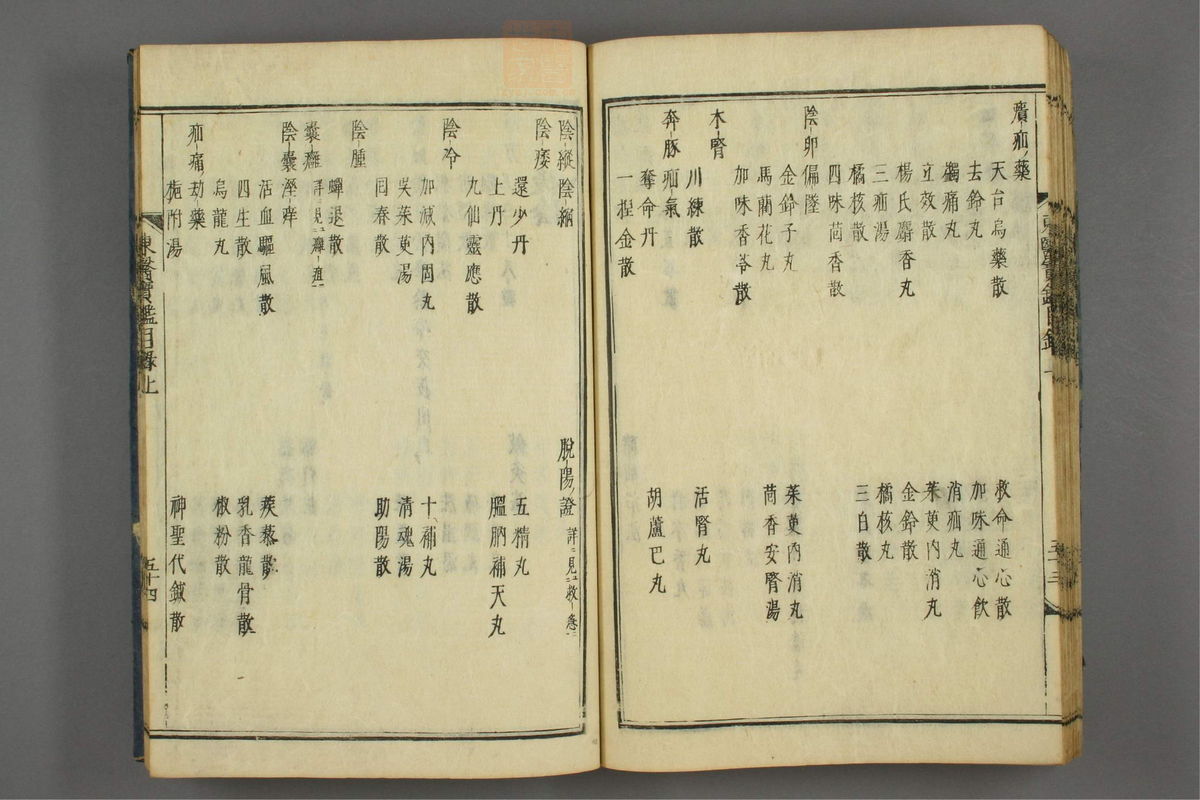 㿉疝藥
天台烏藥散
救命通心散
去鈴丸
加味通心飮
蠲痛丸
消疝丸
立效散
茱萸內消丸
楊氏麝香丸
金鈴散
三疝湯
橘核丸
橘核散
三白散
四味茴香散
陰卵偏墜
金鈴子丸
茱萸內消丸
馬藺花丸
茴香安腎湯
加味香苓散
木腎
川練散
活腎丸
奔豚疝氣
奪命丹
胡蘆巴丸
一捏金散
五十三
陰縱陰縮
脫陽證 詳見救
陰痿
還少丹
五精丸
上丹
膃肭補天丸
九仙靈應散
陰冷
加減內固丸
十補丸
吳茱萸湯
清魂湯
回春散
助陽散
陰腫
蟬退散
囊癰 詳見癰疽
陰囊濕痒
活血驅風散
蒺莃散
四生散
乳香龍骨散
烏龍丸
椒粉散
疝痛劫藥
梔附湯
神聖代鍼散
東醫寶鑑目錄上
五十四